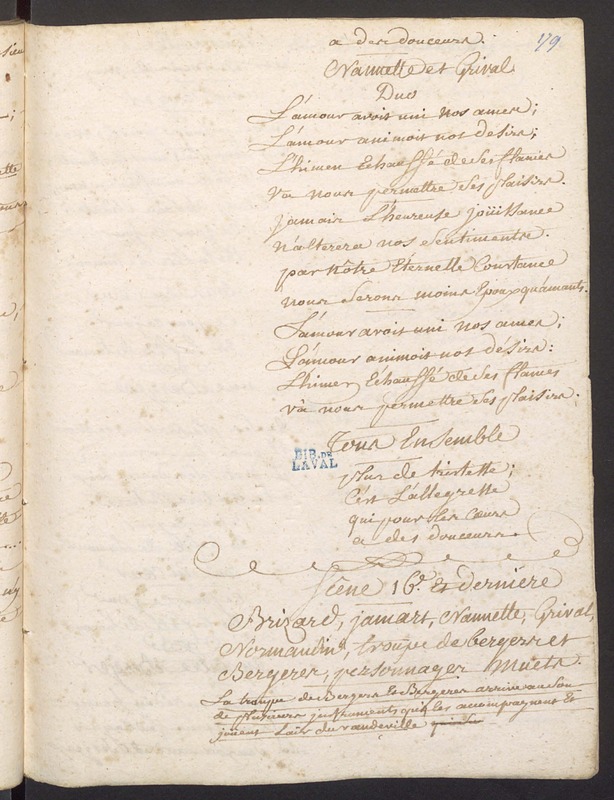 79
a des douceurs.
Nannette et Grival
Duo
L'amour avoit uni nos ames;
L'amour animoit nos désirs;
L'himen Echauffé de ses flames
va nous permettre ses plaisirs.
jamais L'heureuse joüissance
n'alterera nos sentiments.
par nôtre Eternelle Constance
nous serons moins Epoux qu'amants.
L'amour avoit uni nos ames;
L'amour animoit nos désirs:
L'himen Echauffé de ses flames
va nous permettre ses plaisirs.
Tous Ensemble
BIB. DE
LAVAL
plus de tristesse;
C'est L'allegresse
qui pour les cœurs
a des douceurs.
Scène 16e. Et derniére
Brizard, jamart, Nannette, Grival,
Normandin, troupe de bergers et
Bergeres, personnages Muets.
La troupe de Bergers Et Bergeres arrive au son
de plusieurs instruments qui les accompagnent Et
joüent L'air du vaudeville